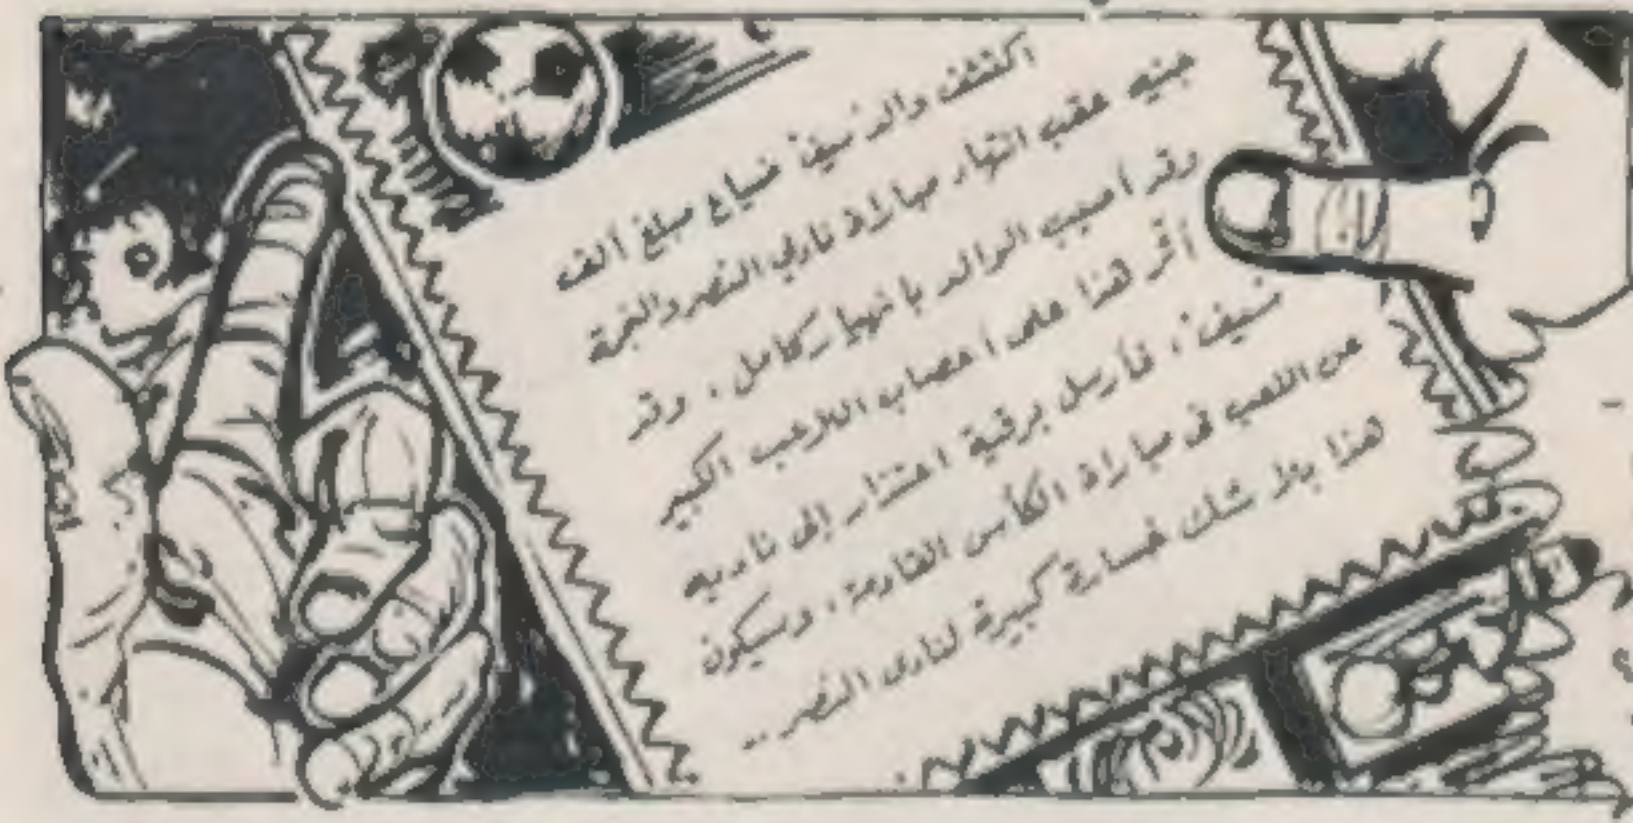 اكتشف والد سيف ضياع مبلغ ألف
جنيه عقب انتهاء مباراة ناديي النصر والنجمة
وقد أصيب الوالد بانهيار كامل، وقد
أثر هذا على أعصاب اللاعب الكبير
"سيف"، فأرسل برقية اعتذار إلى ناديه
عن اللعب في مباراة الكأس القادمة، وسيكون
هذا بلا شك خسارة كبيرة لنادي النصر..